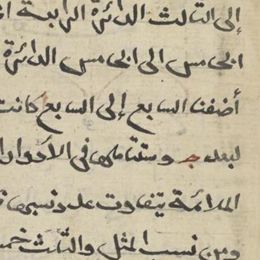 إلى الثالث الدائرة الرابعة
الخامس الى الخامس الدائرة
أضفنا السابع إلى السابع كانت
لبعد ج وستتاملها في الأدوار
الملائمة يتفاوت عدد نسبها
ومن نسب المثل والثلث خمسة